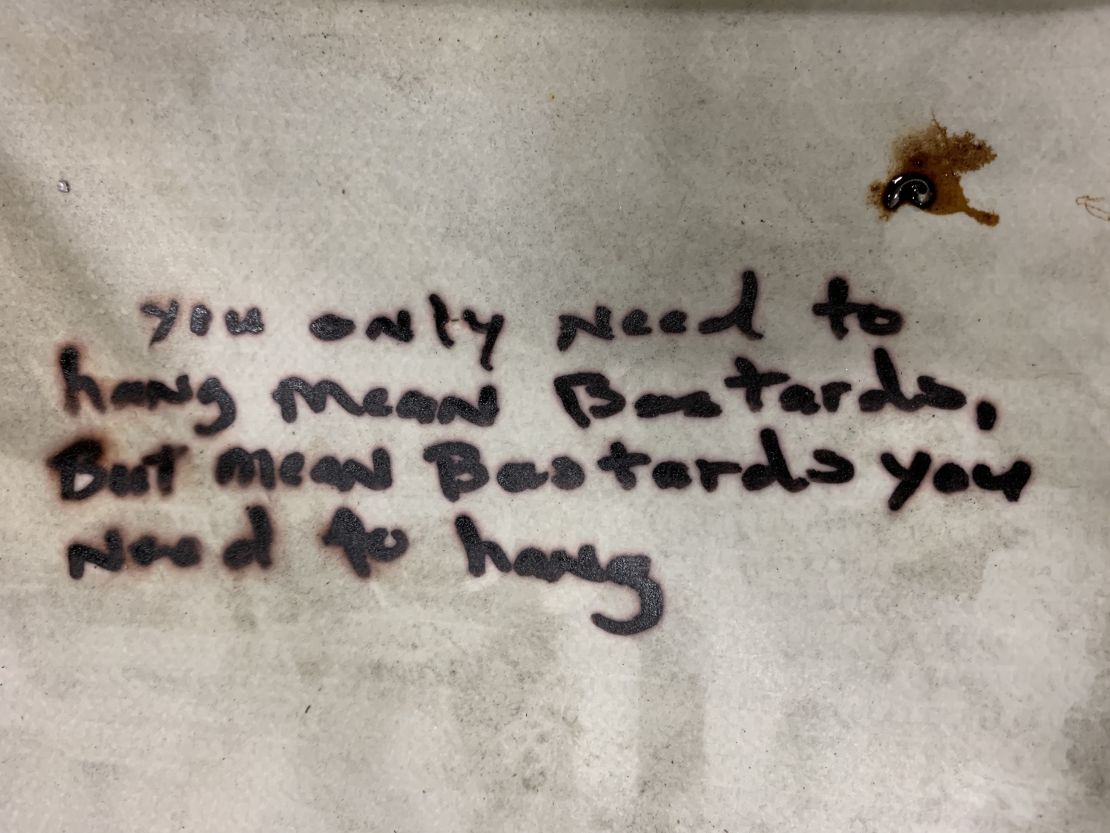 you only need to
hang mean Bastards,
But mean Bastards you
need to hang